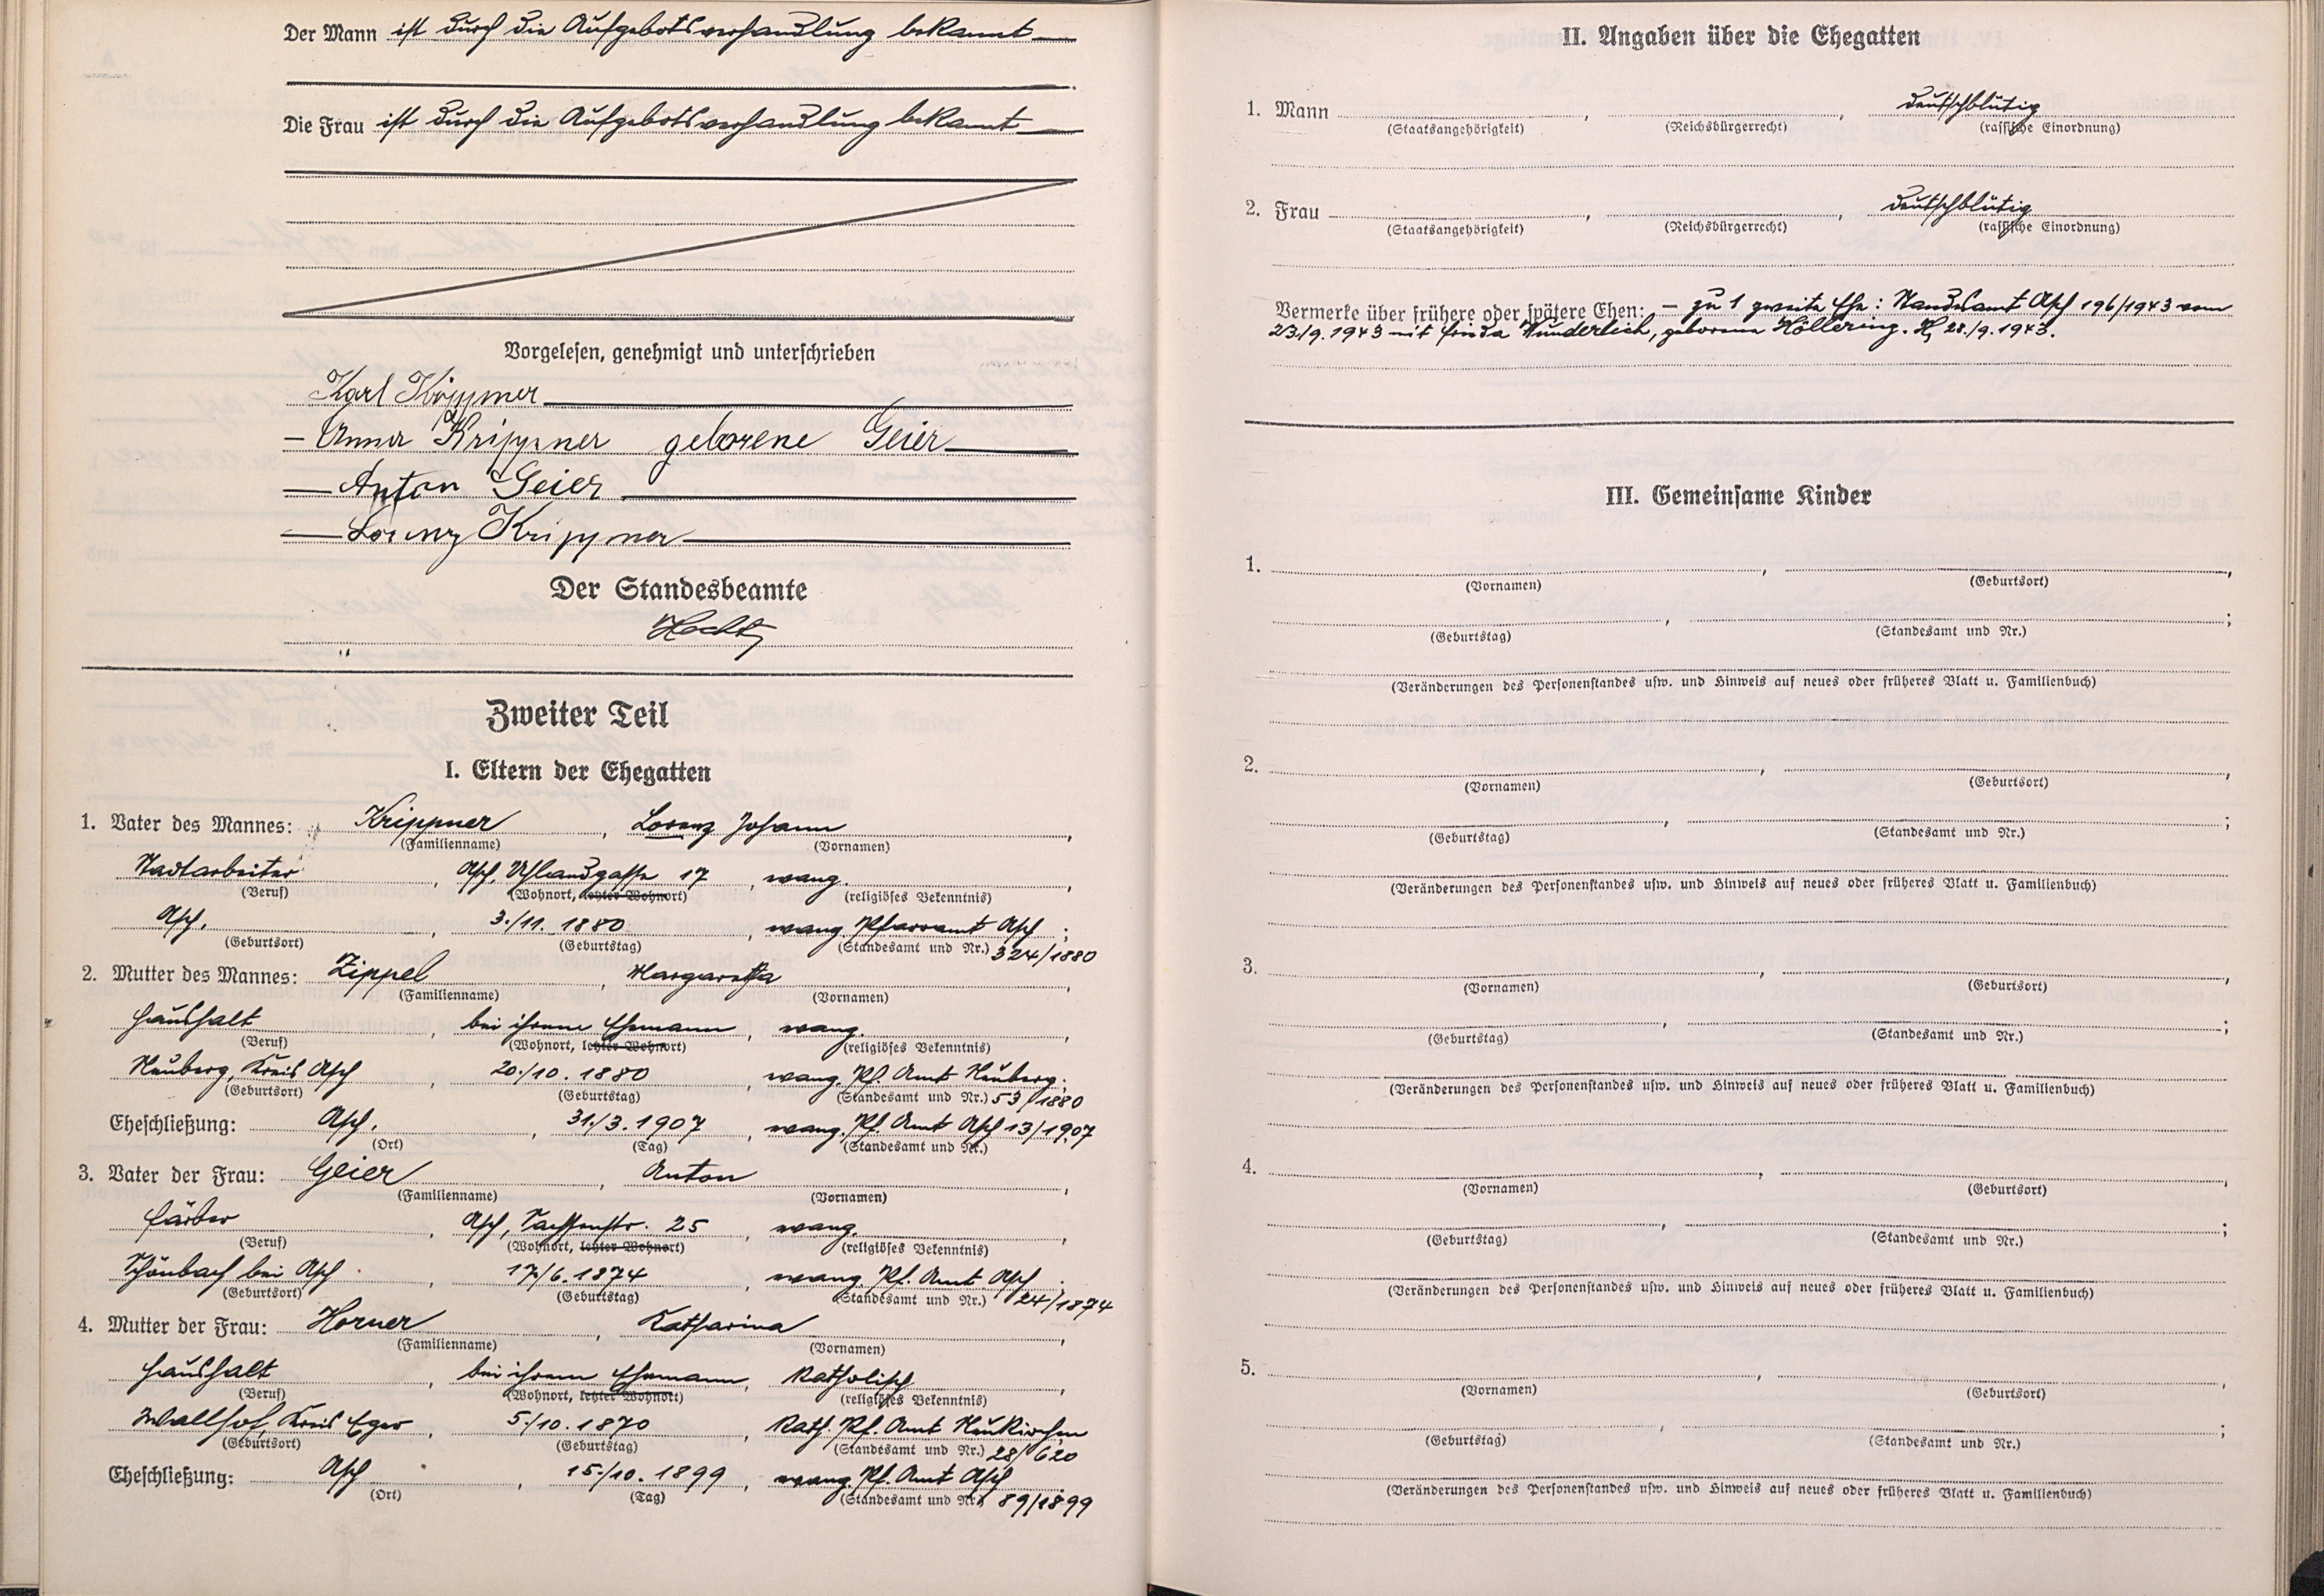 Der Mann ist durch die Aufgebotsverhandlung bekannt
Die Frau ist durch die Aufgebotsverhandlung bekannt
Vorgelesen, genehmigt und unterschrieben
Karl Krippner
Anna Krippner geborene Geier
Anton Geier
Lorenz Krippner
Der Standesbeamte
Zweiter Teil
I. Eltern der Ehegatten
1. Vater des Mannes: Krippner, Lorenz Johann,
(Familienname) (Vornamen)
Stadtarbeiter, Asch, Uhlandgasse 17, evang.,
(Beruf) (Wohnort, letzter Wohnort) (religiöses Bekenntnis)
Asch, 3./11. 1880, evang. Pfarramt Asch;
(Geburtsort) (Geburtstag) (Standesamt und Nr.) 324/1880
2. Mutter des Mannes: Zippel, Margaretha,
(Familienname) (Vornamen)
Haushalt, bei ihrem Ehemann, evang.,
(Beruf) (Wohnort, letzter Wohnort) (religiöses Bekenntnis)
Neuberg, Kreis Asch, 20./10. 1880, evang. Pf. Amt Neuberg;
(Geburtsort) (Geburtstag) (Standesamt und Nr.) 53/1880
Eheschließung: Asch, 31./3. 1907, evang. Pf. Amt Asch 13/1907
(Ort) (Tag) (Standesamt und Nr.)
3. Vater der Frau: Geier, Anton,
(Familienname) (Vornamen)
Färber, Asch, Sachsenstr. 25, evang.,
(Beruf) (Wohnort, letzter Wohnort) (religiöses Bekenntnis)
Schönbach bei Asch, 17/6. 1874, evang. Pf. Amt Asch;
(Geburtsort) (Geburtstag) (Standesamt und Nr.) 24/1874
4. Mutter der Frau: Horner, Katharina,
(Familienname) (Vornamen)
Haushalt, bei ihrem Ehemann, katholisch,
(Beruf) (Wohnort, letzter Wohnort) (religiöses Bekenntnis)
Wallhof, Kreis Eger, 5./10. 1870, kath. Pf. Amt Neukirchen
(Geburtsort) (Geburtstag) (Standesamt und Nr.) 28/620
Eheschließung: Asch, 15./10. 1899, evang. Pf. Amt Asch
(Ort) (Tag) (Standesamt und Nr.) 89/1899
II. Angaben über die Ehegatten
1. Mann , , deutschblütig
(Staatsangehörigkeit) (Reichsbürgerrecht) (rassische Einordnung)
2. Frau , , deutschblütig
(Staatsangehörigkeit) (Reichsbürgerrecht) (rassische Einordnung)
Vermerke über frühere oder spätere Ehen: – zu 1 zweite Ehe: Standesamt Asch 196/1943 vom
23./9. 1943 mit Wunderlich, geborene Höllering. 28./9. 1943.
III. Gemeinsame Kinder
1. , ,
(Vornamen) (Geburtsort)
, ;
(Geburtstag) (Standesamt und Nr.)
(Veränderungen des Personenstandes usw. und Hinweis auf neues oder früheres Blatt u. Familienbuch)
2. , ,
(Vornamen) (Geburtsort)
, ;
(Geburtstag) (Standesamt und Nr.)
(Veränderungen des Personenstandes usw. und Hinweis auf neues oder früheres Blatt u. Familienbuch)
3. , ,
(Vornamen) (Geburtsort)
, ;
(Geburtstag) (Standesamt und Nr.)
(Veränderungen des Personenstandes usw. und Hinweis auf neues oder früheres Blatt u. Familienbuch)
4. , ,
(Vornamen) (Geburtsort)
, ;
(Geburtstag) (Standesamt und Nr.)
(Veränderungen des Personenstandes usw. und Hinweis auf neues oder früheres Blatt u. Familienbuch)
5. , ,
(Vornamen) (Geburtsort)
, ;
(Geburtstag) (Standesamt und Nr.)
(Veränderungen des Personenstandes usw. und Hinweis auf neues oder früheres Blatt u. Familienbuch)